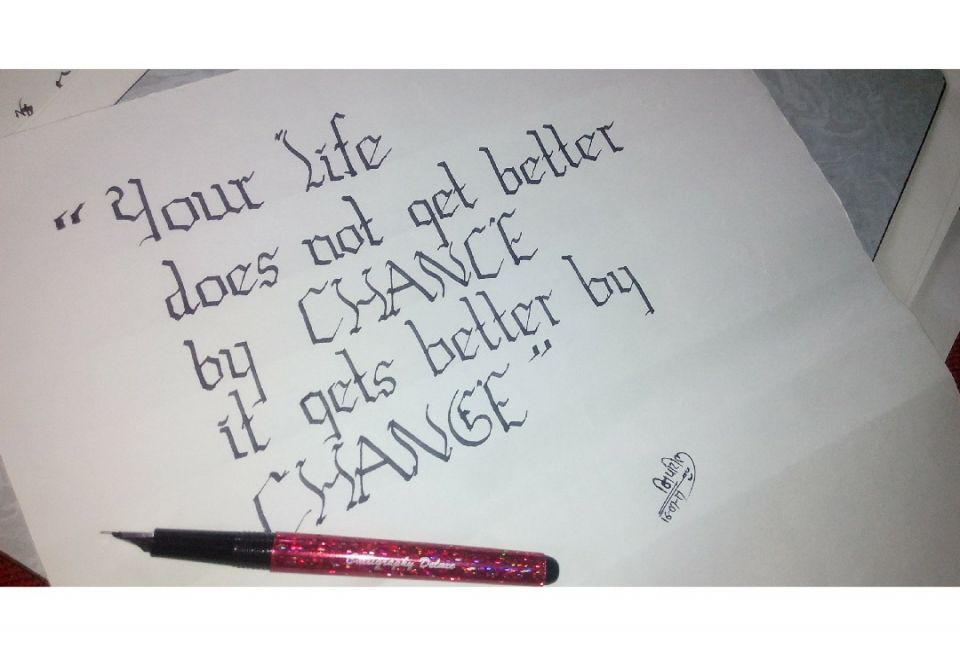 “ Your Life
does not get better
by CHANCE
it gets better by
CHANGE ”
Calligraphy Deluxe